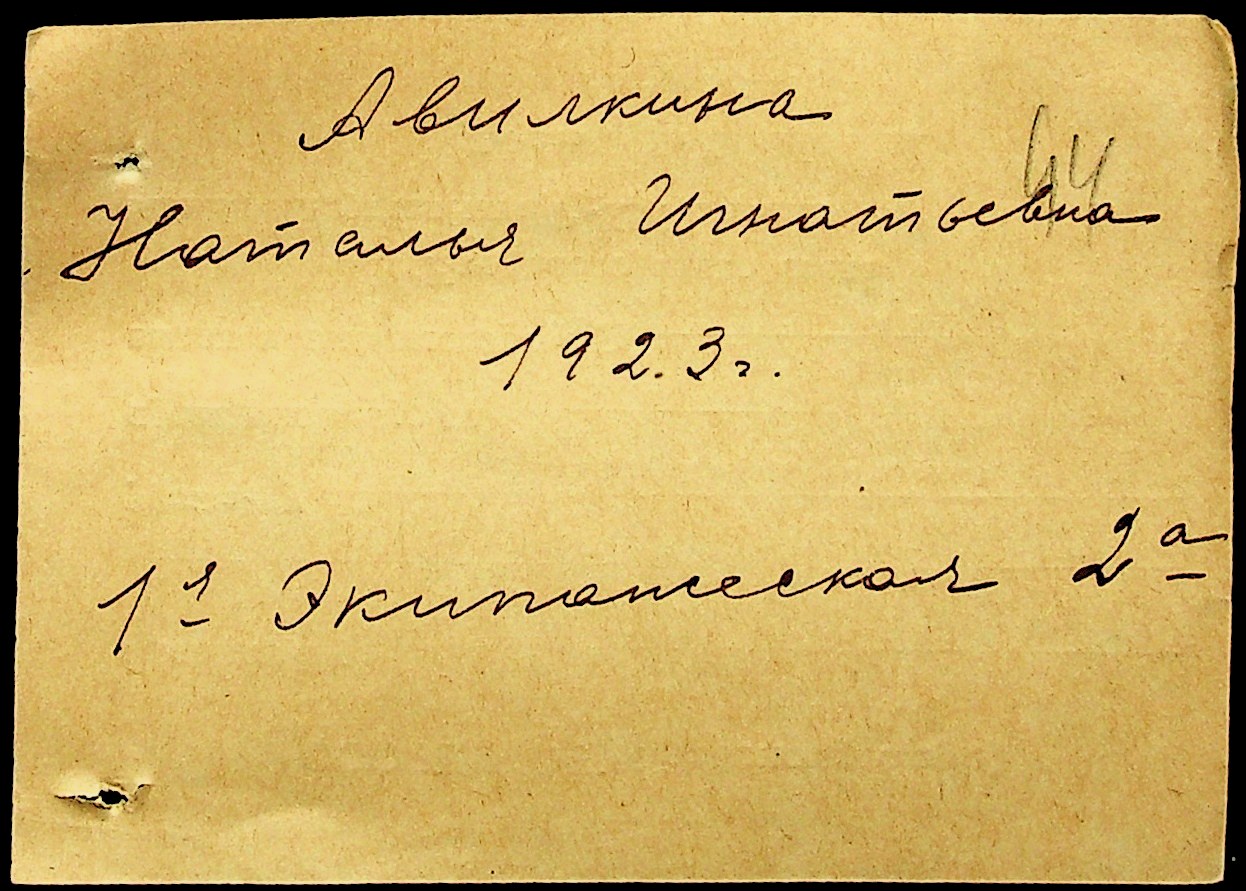 Авилкина
44
Наталья Игнатьевна
1923г.
1я Экипажеская 2а